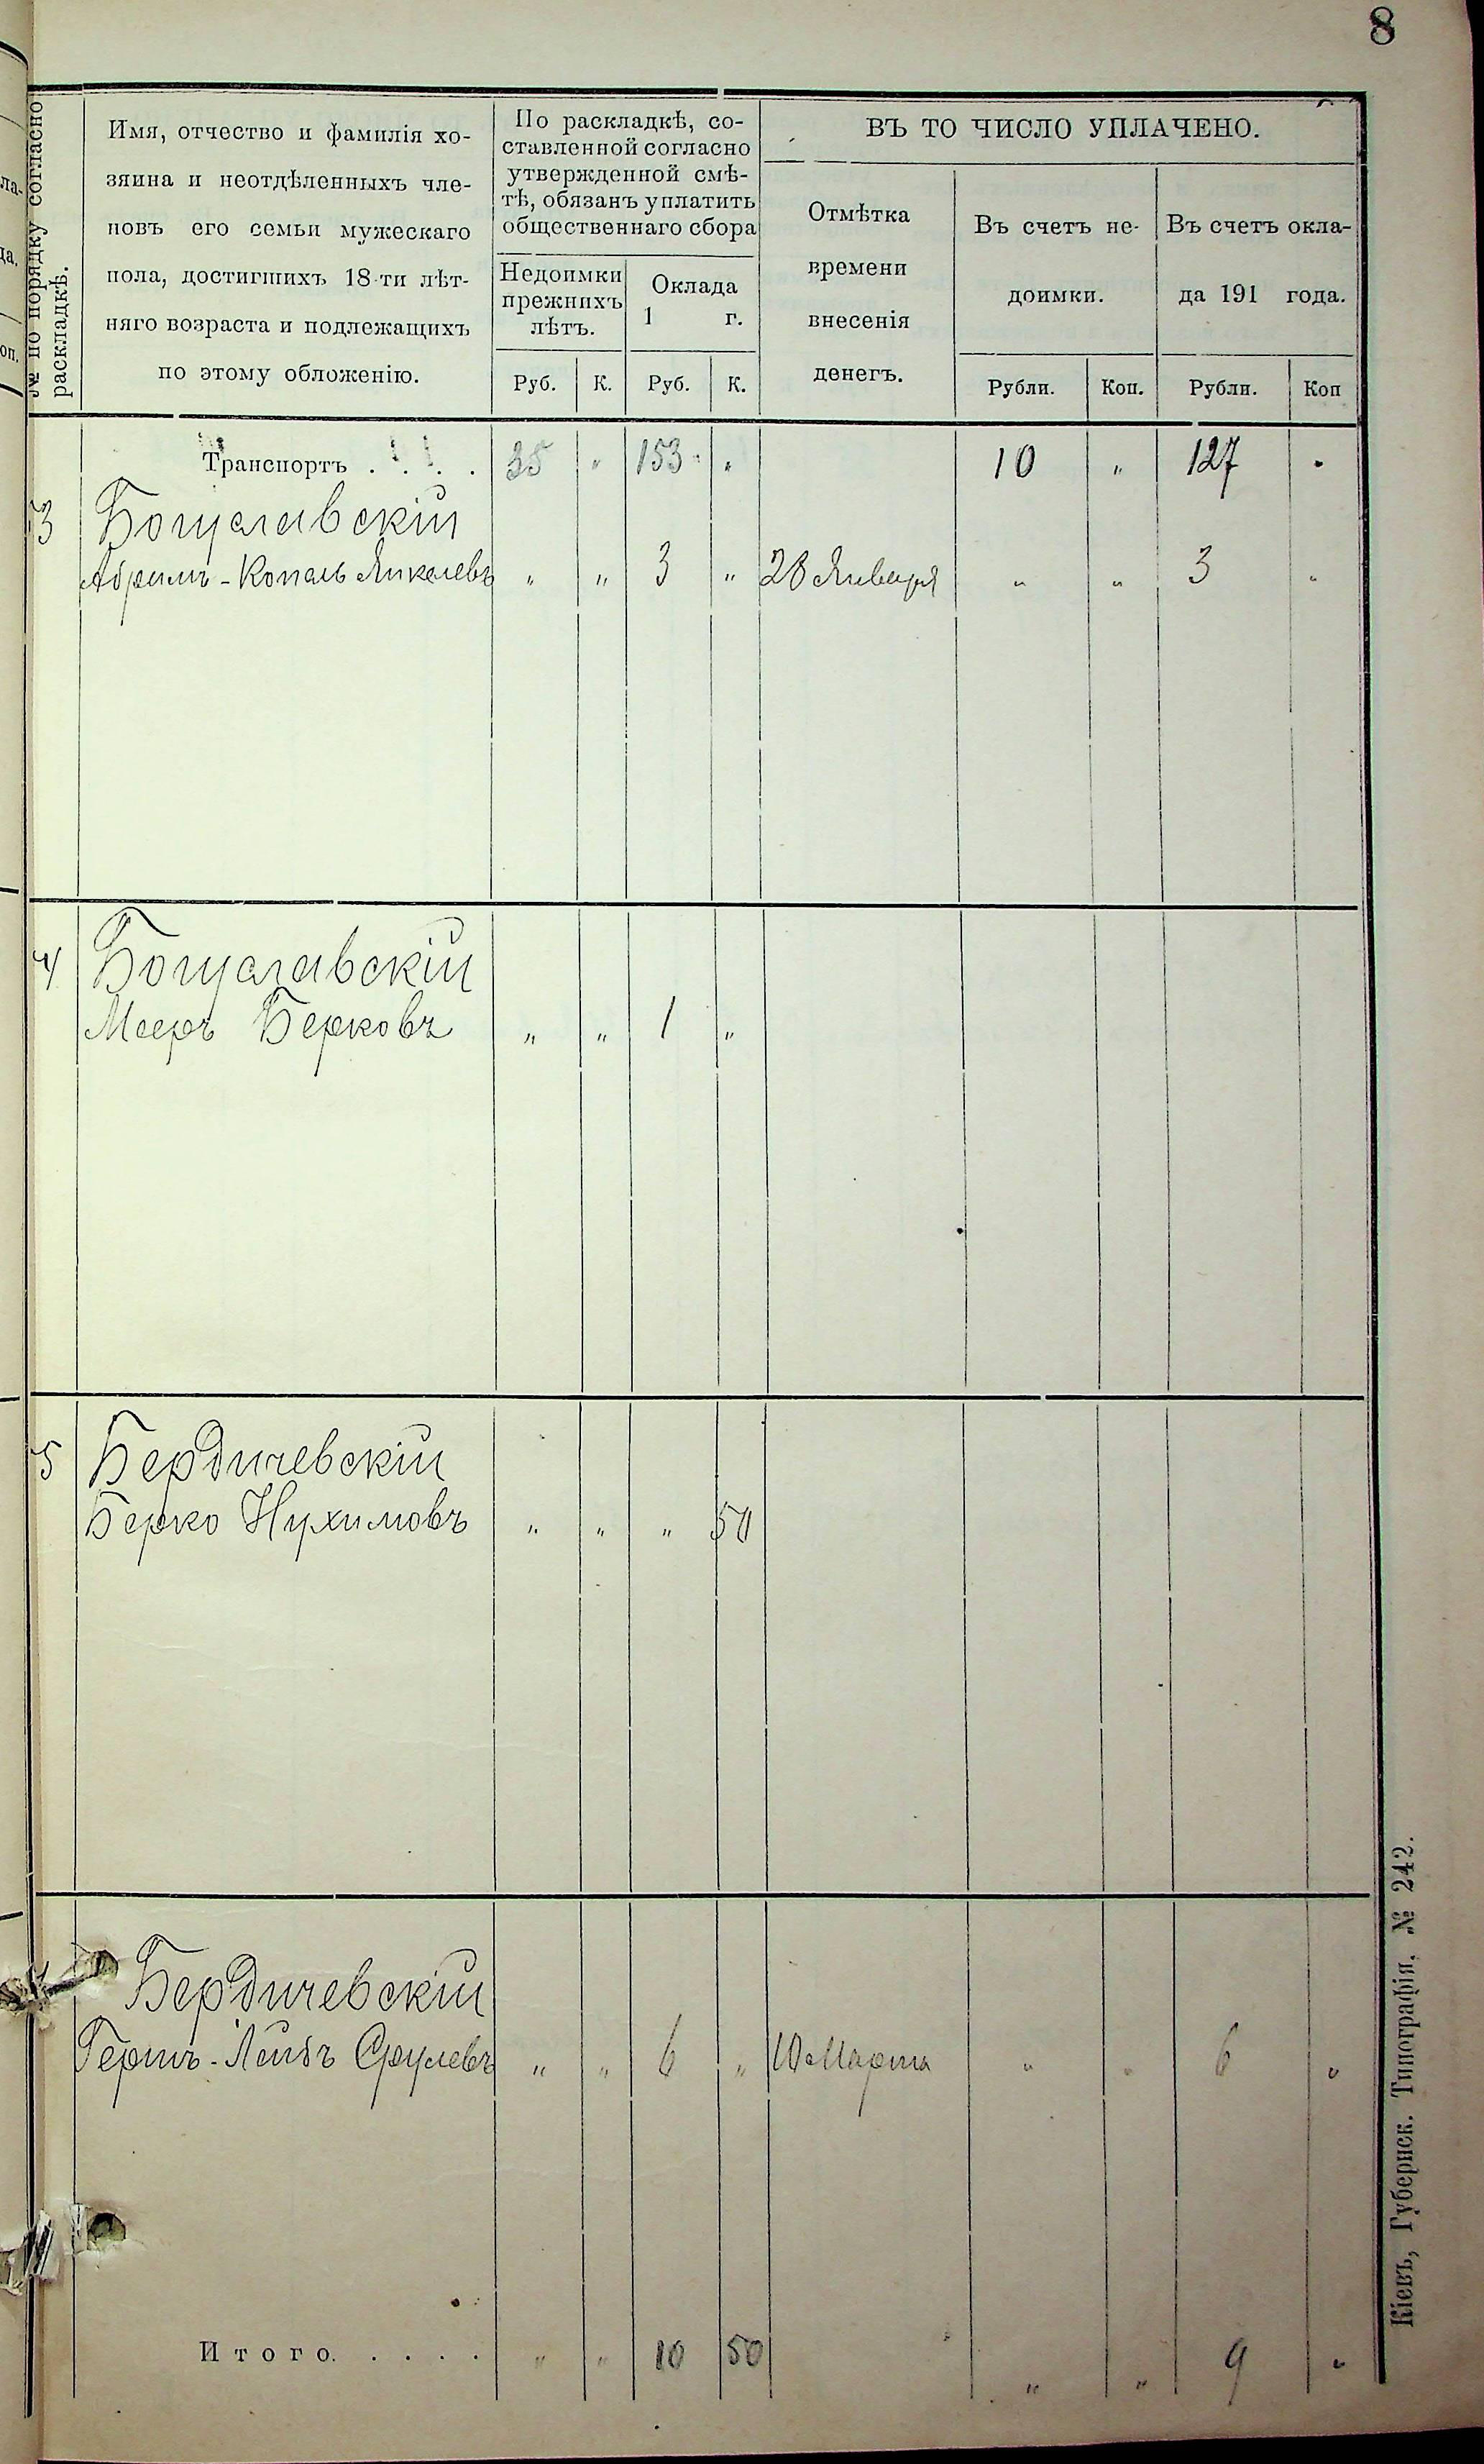 8
№ по порядку согласно
раскладкѣ.
Имя, отчество и фамилія хо-
зяина и неотдѣленныхъ чле-
новъ его семьи мужескаго
пола, достигшихъ 18-ти лѣт-
няго возраста и подлежащихъ
по этому обложенію.
По раскладкѣ, со-
ставленной согласно
утвержденной смѣ-
тѣ, обязанъ уплатить
общественнаго сбора
Недоимки
прежнихъ
лѣтъ.
Оклада
1 г.
Руб. К. Руб. К.
ВЪ ТО ЧИСЛО УПЛАЧЕНО.
Отмѣтка
времени
внесенія
денегъ.
Въ счетъ не-
доимки.
Въ счетъ окла-
да 191 года.
Рубли. Коп. Рубли. Коп
Транспортъ . . . . 35 " 153 " 10 " 127 "
3 Богуславскій
Абрамъ-Копель Янкелевъ " " 3 " 28 Января " " 3 "
4 Богуславскій
Мееръ Берковъ " " 1 "
5 Бердичевскій
Берко Нухимовъ " " " 50
Бердичевскій
Гершъ-Лейбъ Срулевъ " " 6 " 10 Марта " " 6 "
Итого. . . . . " " 10 50 " " 9 "
Кіевъ, Губернск. Типографія, № 242.